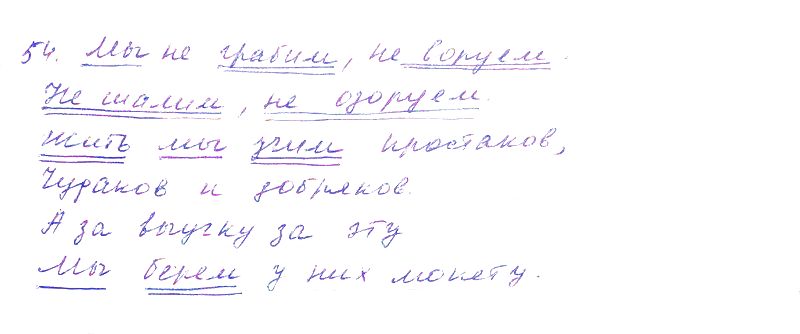 54. Мы не грабим, не воруем.
Не шалим, не озоруем.
Жить мы учим простаков,
Чудаков и добряков.
А за выучку за эту
Мы берем у них монету.